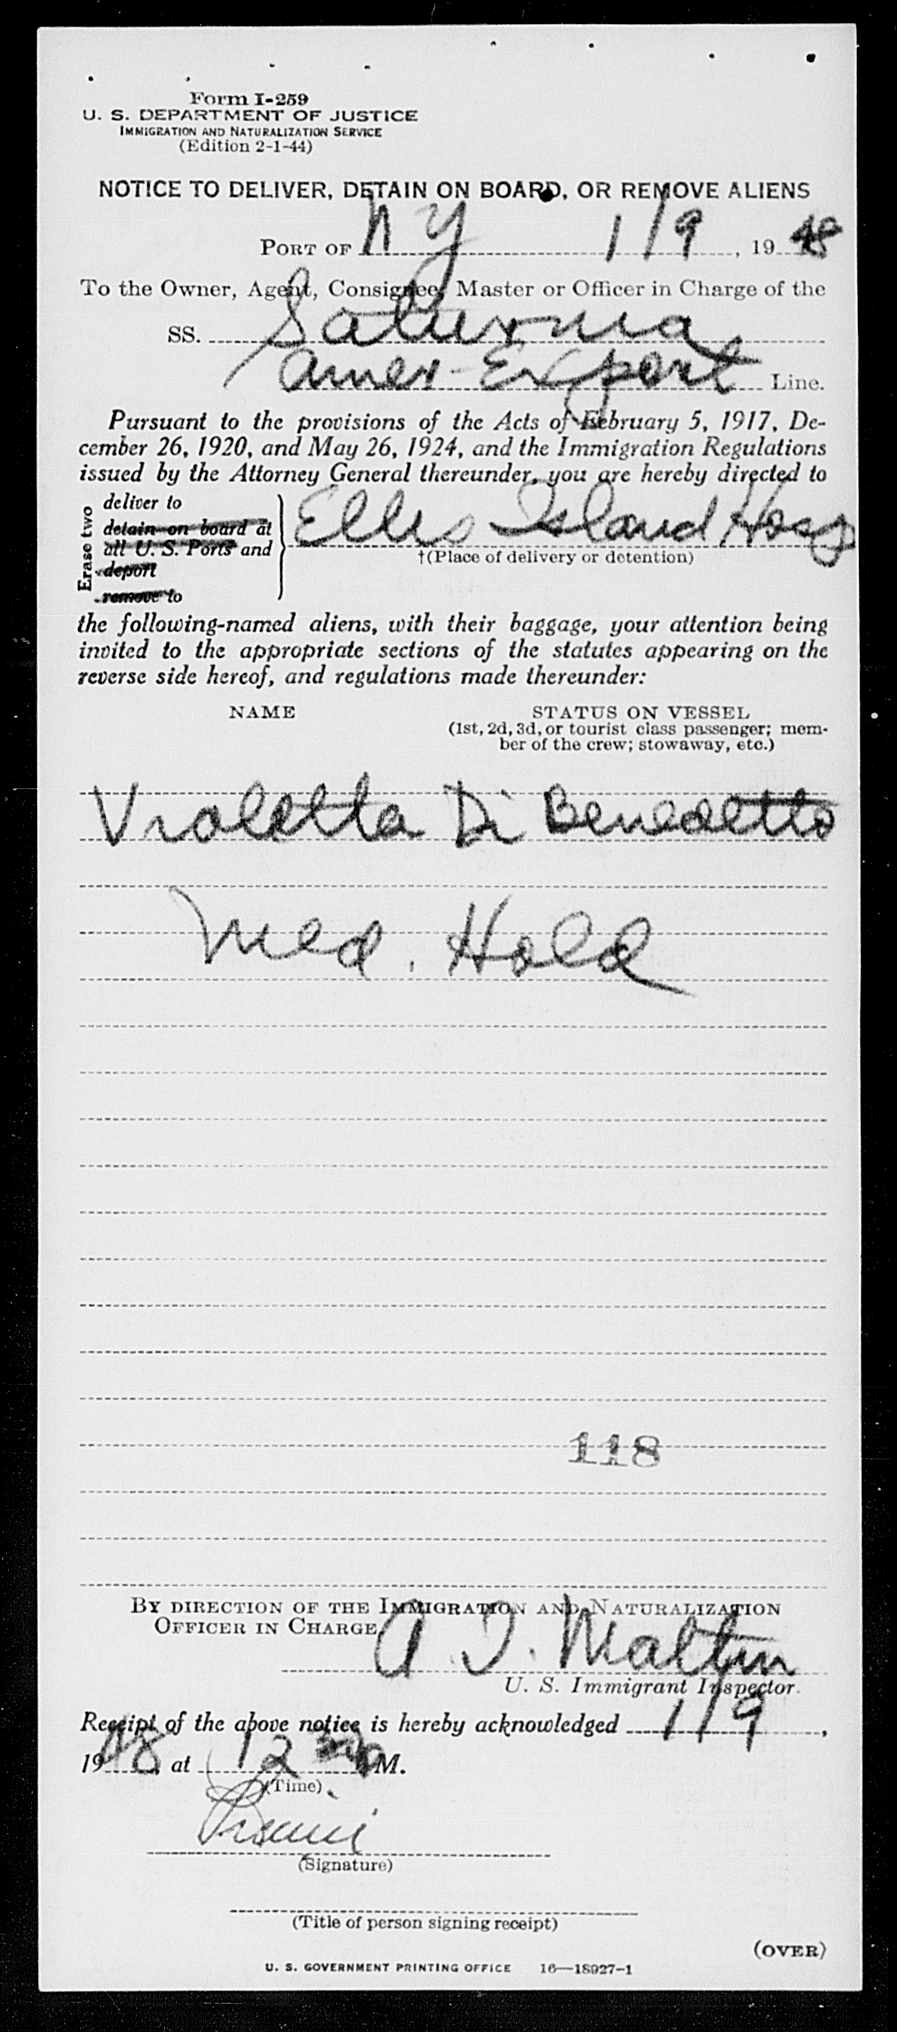 Form I-259
U. S. DEPARTMENT OF JUSTICE
IMMIGRATION AND NATURALIZATION SERVICE
(Edition 2-1-44)
NOTICE TO DELIVER, DETAIN ON BOARD, OR REMOVE ALIENS
PORT OF N Y 1/9, 19 48
To the Owner, Agent, Consignee, Master or Officer in Charge of the
SS. Saturnia
Amer-Export Line.
Pursuant to the provisions of the Acts of February 5, 1917, De-
cember 26, 1920, and May 26, 1924, and the Immigration Regulations
issued by the Attorney General thereunder, you are hereby directed to
Erase two
deliver to
detain on board at
all U. S. Ports and
deport
remove to
Ellis Island Hosp
†(Place of delivery or detention)
the following-named aliens, with their baggage, your attention being
invited to the appropriate sections of the statutes appearing on the
reverse side hereof, and regulations made thereunder:
NAME STATUS ON VESSEL
(1st, 2d, 3d, or tourist class passenger; mem-
ber of the crew; stowaway, etc.)
Violetta Di Benedetto
Med. Hold
118
BY DIRECTION OF THE IMMIGRATION AND NATURALIZATION
OFFICER IN CHARGE,
U. S. Immigrant Inspector.
Receipt of the above notice is hereby acknowledged 1/9,
19 48 at 12 M.
(Time)
(Signature)
(Title of person signing receipt)
(OVER)
U. S. GOVERNMENT PRINTING OFFICE 16—18927-1